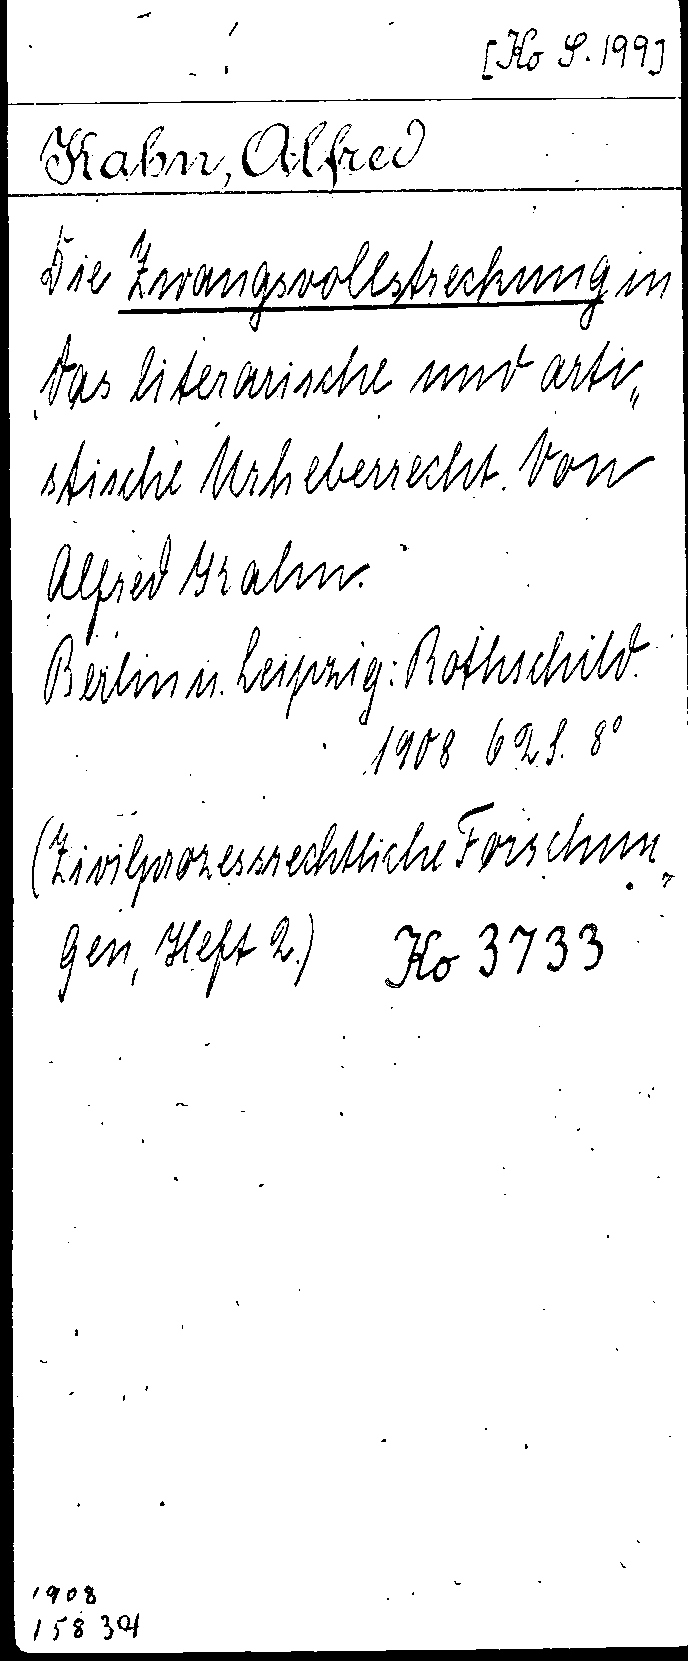 [Ko S. 199]
Kahn, Alfred
Die Zwangsvollstreckung in
das literarische und arti„
stische Urheberrecht. Von
Alfred Kahn.
Berlin u. Leipzig: Rothschild.
1908 62 S. 8°
(Zivilprozessrechtliche Forschun„
gen, Heft 2.) Ko 3733
1908